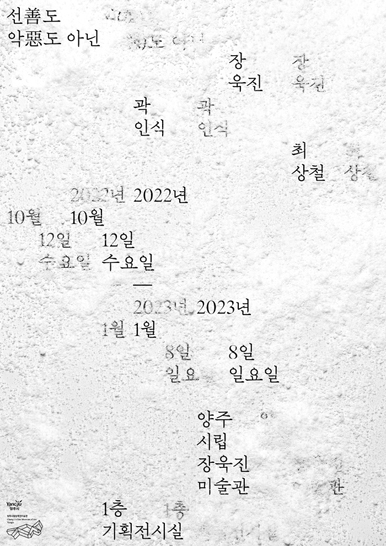 선善도
악惡도 아닌
장 장
욱진 욱진
곽 곽
인식 인식
최
상철 상철
2022년 2022년
10월 10월
12일 12일
수요일 수요일
—
2023년 2023년
1월 1월
8일 8일
일요 일요일
양주
시립
장욱진
미술관 관
1층 1층
기획전시실